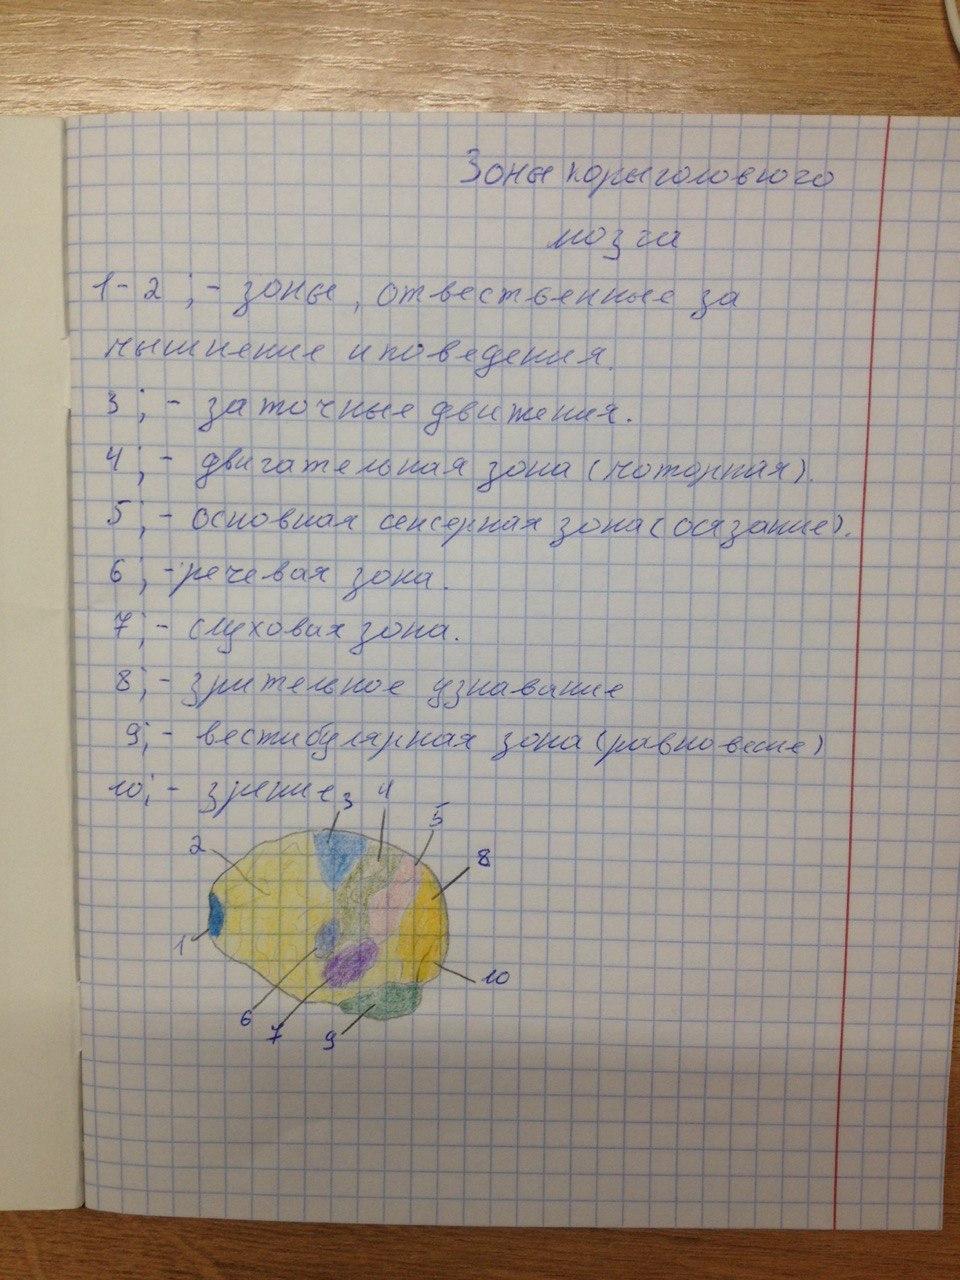 Зоны коры головного
мозга
1-2 ;- зоны, отвественные за
мышление и поведения.
3 ;- за точные движения.
4 ;- двигательная зона (моторная).
5 ;- основная сенсерная зона (осязание).
6 ;- речевая зона.
7 ;- слуховая зона.
8 ;- зрительное узнавание
9 ;- вестибулярная зона (равновесие)
10 ;- зрение
3 4 5
2 8
1 10
6 7 9